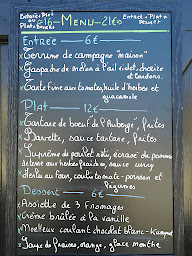 Entrée + Plat
ou
Plat + Dessert
€16 - MENU - 21€
Entrée + Plat + Dessert
Entrée — 6€
Terrine de campagne "maison"
Gaspacho de melon à l'ail violet, chorizo
et croutons.
Carte Fuve aux tomates, huile d'herbes et
guacamole
Plat — 12€
Tartare de boeuf de l'Aubergi", frites
Bavette, sauce tartare, frites
Suprême de poulet rôti, écrasé de pomme
de terre aux herbes fraîches, sauce curry
Merlu au four, coulis tomate-poivron et
légumes
Dessert — 6€
Assiette de 3 Fromages
Crème brûlée à la vanille
Moelleux coulant chocolat blanc-
Soupe de fraises, mangue, glace menthe